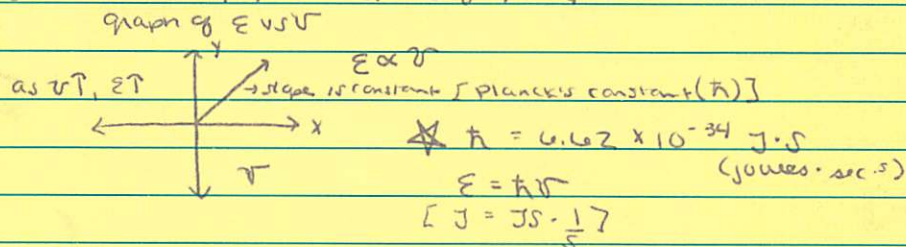 graph of ε vs ν
y
ε ∝ ν
as ν↑, ε↑
→ slope is constant [planck's constant (ħ)]
x
☆ ħ = 6.62 x 10⁻³⁴ J·S
(joules · sec.s)
ν
ε = ħν
[J = JS · 1/s]